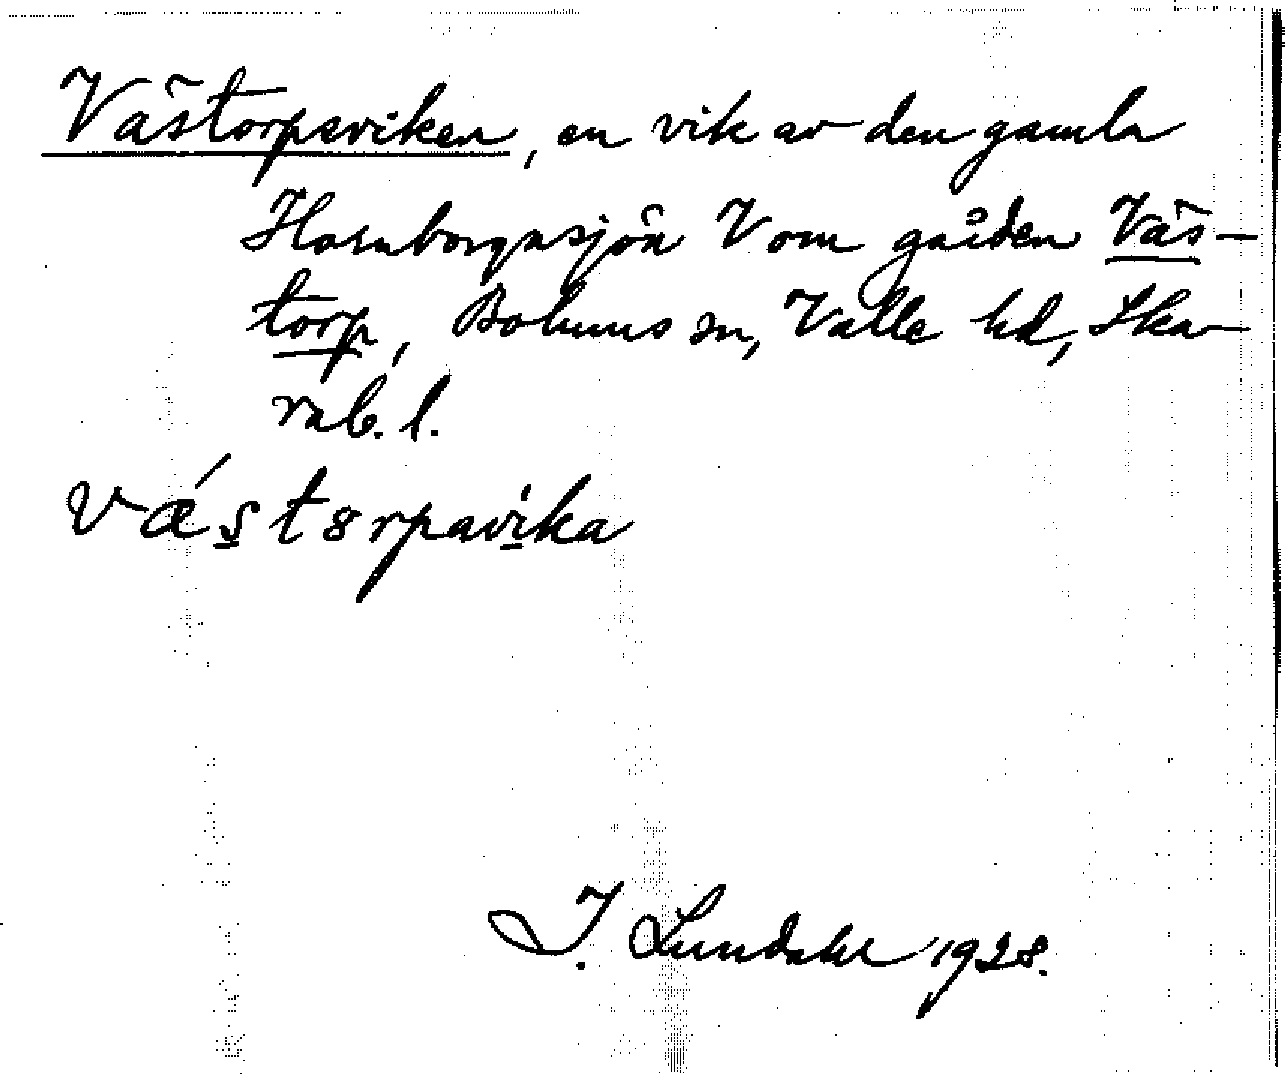 Västorpsviken, en vik av den gamla
Hornborgasjön V om gården Väs-
torp, Bolums sn, Valle hd, Ska-
rab. l.
vǽstɵrpavika
I. Lundahl 1928.